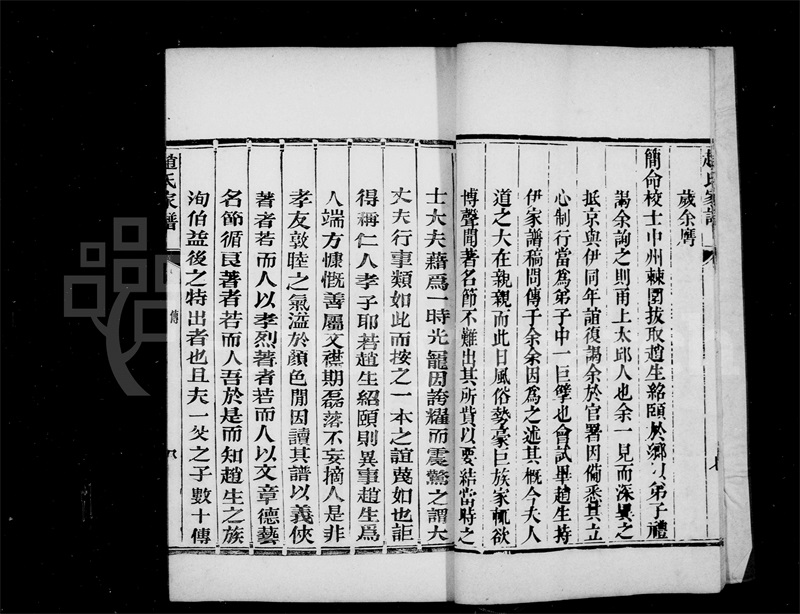 趙氏家譜
歲余膺
簡命校士中州棘闈拔取趙生紹頤於鄉以弟子禮
謁余詢之則甬上太邱人也余一見而深異之
抵京與伊同年誼復謁余於官署因備悉其立
心制行當為弟子中一巨擘也會試畢趙生持
伊家譜稿問傳于余余因為之述其概今夫人
道之大在親親而此日風俗勢豪巨族家輒欲
博聲聞著名節不難出其所貲以要結當時之
士大夫藉為一時光寵因誇耀而震驚之謂大
丈夫行事類如此而按之一本之誼蔑如也詎
得稱仁人孝子耶若趙生紹頤則異事趙生為
人端方慷慨善屬文襟期磊落不妄摘人是非
孝友敦睦之氣溢於顏色間因讀其譜以義俠
著者若而人以孝烈著者若而人以文章德藝
名節循良著者若而人吾於是而知趙生之族
洵伯益後之特出者也且夫一父之子數十傳
趙氏家譜
傳